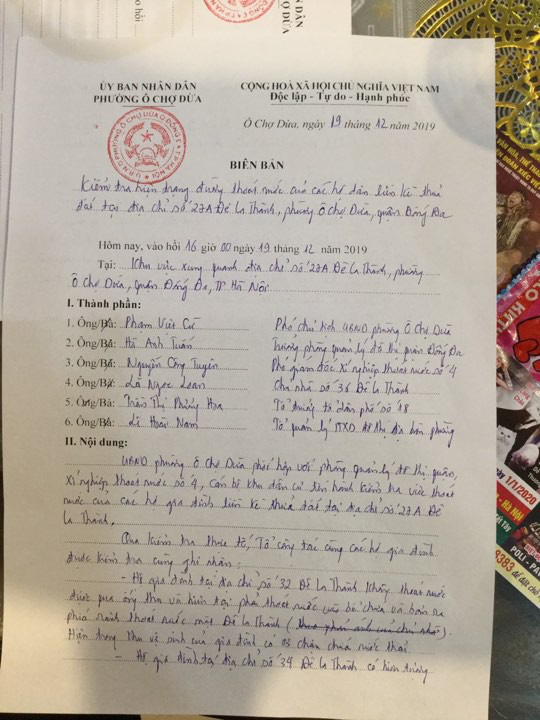 ỦY BAN NHÂN DÂN
PHƯỜNG Ô CHỢ DỪA
CỘNG HOÀ XÃ HỘI CHỦ NGHĨA VIỆT NAM
Độc lập - Tự do - Hạnh phúc
Ô Chợ Dừa, ngày 19 tháng 12 năm 2019
BIÊN BẢN
Kiểm tra hiện trạng đường thoát nước của các hộ dân liền kề thửa
đất tại địa chỉ số 27A Đê La Thành, phường Ô Chợ Dừa, quận Đống Đa
Hôm nay, vào hồi 16 giờ 00 ngày 19 tháng 12 năm 2019
Tại: Khu vực xung quanh địa chỉ số 27A Đê La Thành, phường
Ô Chợ Dừa, quận Đống Đa, TP Hà Nội
I. Thành phần:
1. Ông/Bà: Phạm Viết Cử Phó chủ tịch UBND phường Ô Chợ Dừa
2. Ông/Bà: Hà Anh Tuấn Trưởng phòng quản lý đô thị quận Đống Đa
3. Ông/Bà: Nguyễn Công Tuyên Phó giám đốc Xí nghiệp thoát nước số 4
4. Ông/Bà: Lê Ngọc Loan Chủ nhà số 36 Đê La Thành
5. Ông/Bà: Trần Thị Hoa Tổ trưởng tổ dân phố số 18
6. Ông/Bà: Lê Hoài Nam Tổ quản lý TTXD đô thị địa bàn phường
II. Nội dung:
UBND phường Ô Chợ Dừa phối hợp với phòng quản lý đô thị quận,
Xí nghiệp thoát nước số 4, Cán bộ khu dân cư tiến hành kiểm tra việc thoát
nước của các hộ gia đình liền kề thửa đất tại địa chỉ số 27A Đê
La Thành.
Qua kiểm tra thực tế, Tổ công tác cùng các hộ gia đình
được kiểm tra cùng ghi nhận:
- Hộ gia đình tại địa chỉ số 32 Đê La Thành không thoát nước
được qua ống thu và hiện tại phải thoát nước vào bể chứa và bơm ra
phía rãnh thoát nước mặt Đê La Thành (theo phản ánh của chủ nhà).
Hiện trong khu vệ sinh của gia đình có 03 chậu chứa nước thải
- Hộ gia đình tại địa chỉ số 34 Đê La Thành có hiện trạng